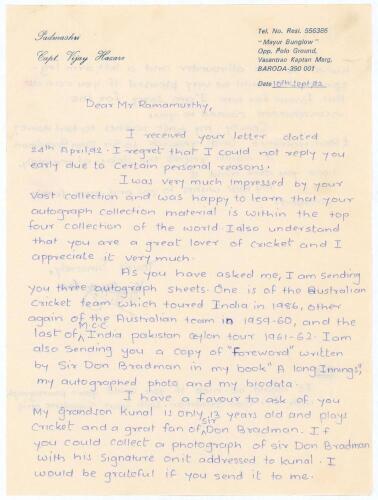 Padmashri
Capt. Vijay Hazare
Tel. No. Resi. 556386
"Mayur Bunglow"
Opp. Polo Ground,
Vasantrao Kaptan Marg,
BARODA-350 001
Date 10th Sept, 92.
Dear Mr Ramamurthy,
I received your letter dated
24th April, 92. I regret that I could not reply you
early due to certain personal reasons.
I was very much impressed by your
vast collection and was happy to learn that your
autograph collection material is within the top
four collection of the world. I also understand
that you are a great lover of cricket and I
appreciate it very much.
As you have asked me, I am sending
you three autograph sheets. One is of the Australian
Cricket team which toured India in 1986, other
again of the Australian team in 1959-60, and the
last of M.C.C. India pakistan ceylon tour 1961-62. I am
also sending you a copy of "Foreword" written
by Sir Don Bradman in my book "A long Innings",
my autographed photo and my biodata.
I have a favour to ask of you
My grandson Kunal is only 13 years old and plays
Cricket and a great fan of Sir Don Bradman. If
you could collect a photograph of sir Don Bradman
with his signature on it addressed to kunal. I
would be grateful if you send it to me.